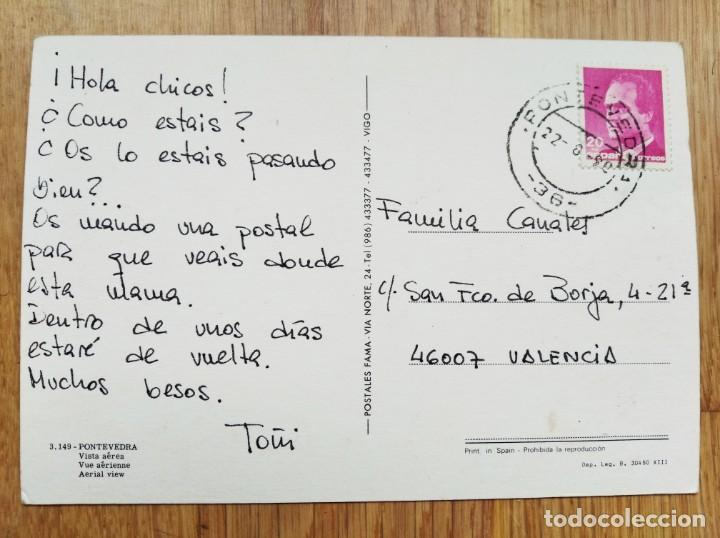 ¡Hola chicos!
¿Como estais?
¿Os lo estais pasando
bien?...
Os mando una postal
para que veais donde
esta mama.
Dentro de unos días
estaré de vuelta.
Muchos besos.
Toñi
3.149 - PONTEVEDRA
Vista aérea
Vue aérienne
Aerial view
POSTALES FAMA - VIA NORTE, 24 - Tel (986) 433377 - 433477 - VIGO
PONTEVEDRA
-36-
20
correos
Familia Canales
c/. San Fco. de Borja, 4-21ª
46007 VALENCIA
Print. in Spain - Prohibida la reproducción
Dep. Leg. B. 30450 XIII
todocoleccion
todocoleccion.net